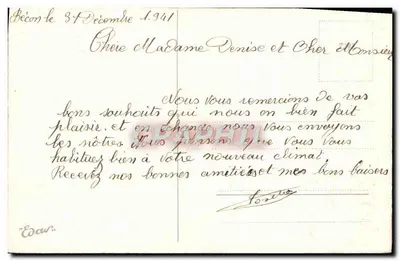 Bécon le 31 Décembre 1941
Chère Madame Denise et Cher Monsieur
Nous Vous remercions de vos
bons souhaits qui nous on bien fait
plaisir. et en échange nous vous envoyons
les nôtres Nous que Vous Vous
habituez bien à Votre nouveau climat.
Recevez nos bonnes amitiées et mes bons baisers